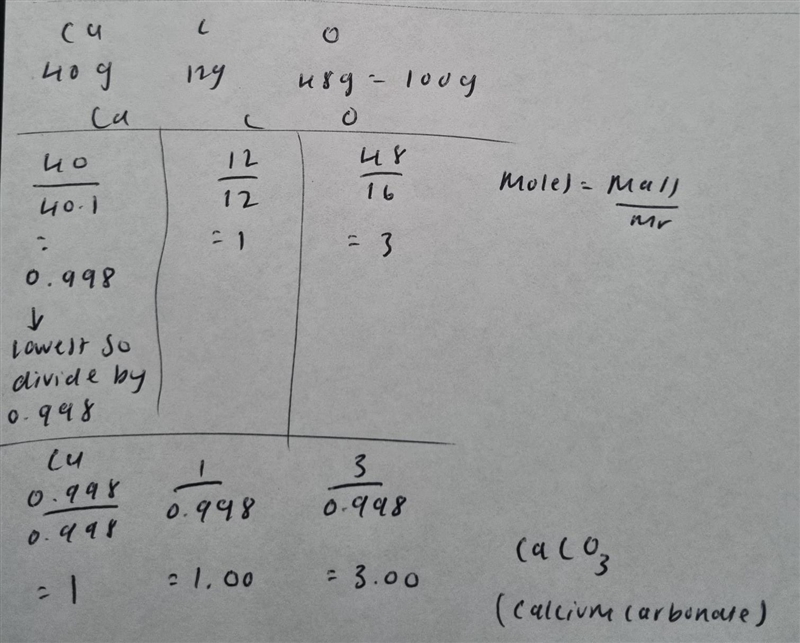 Ca C O
40g 12g 48g = 100g
Ca C O
40/40.1 12/12 48/16 Moles = Mass/Mr
= = 1 = 3
0.998
↓
lowest so
divide by
0.998
Ca
0.998/0.998 1/0.998 3/0.998
= 1 = 1.00 = 3.00
CaCO₃
(Calcium carbonate)